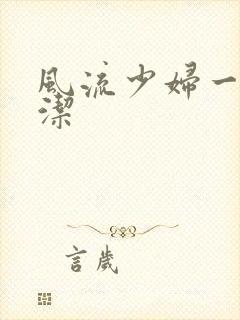 風流少婦一
潔
言歲